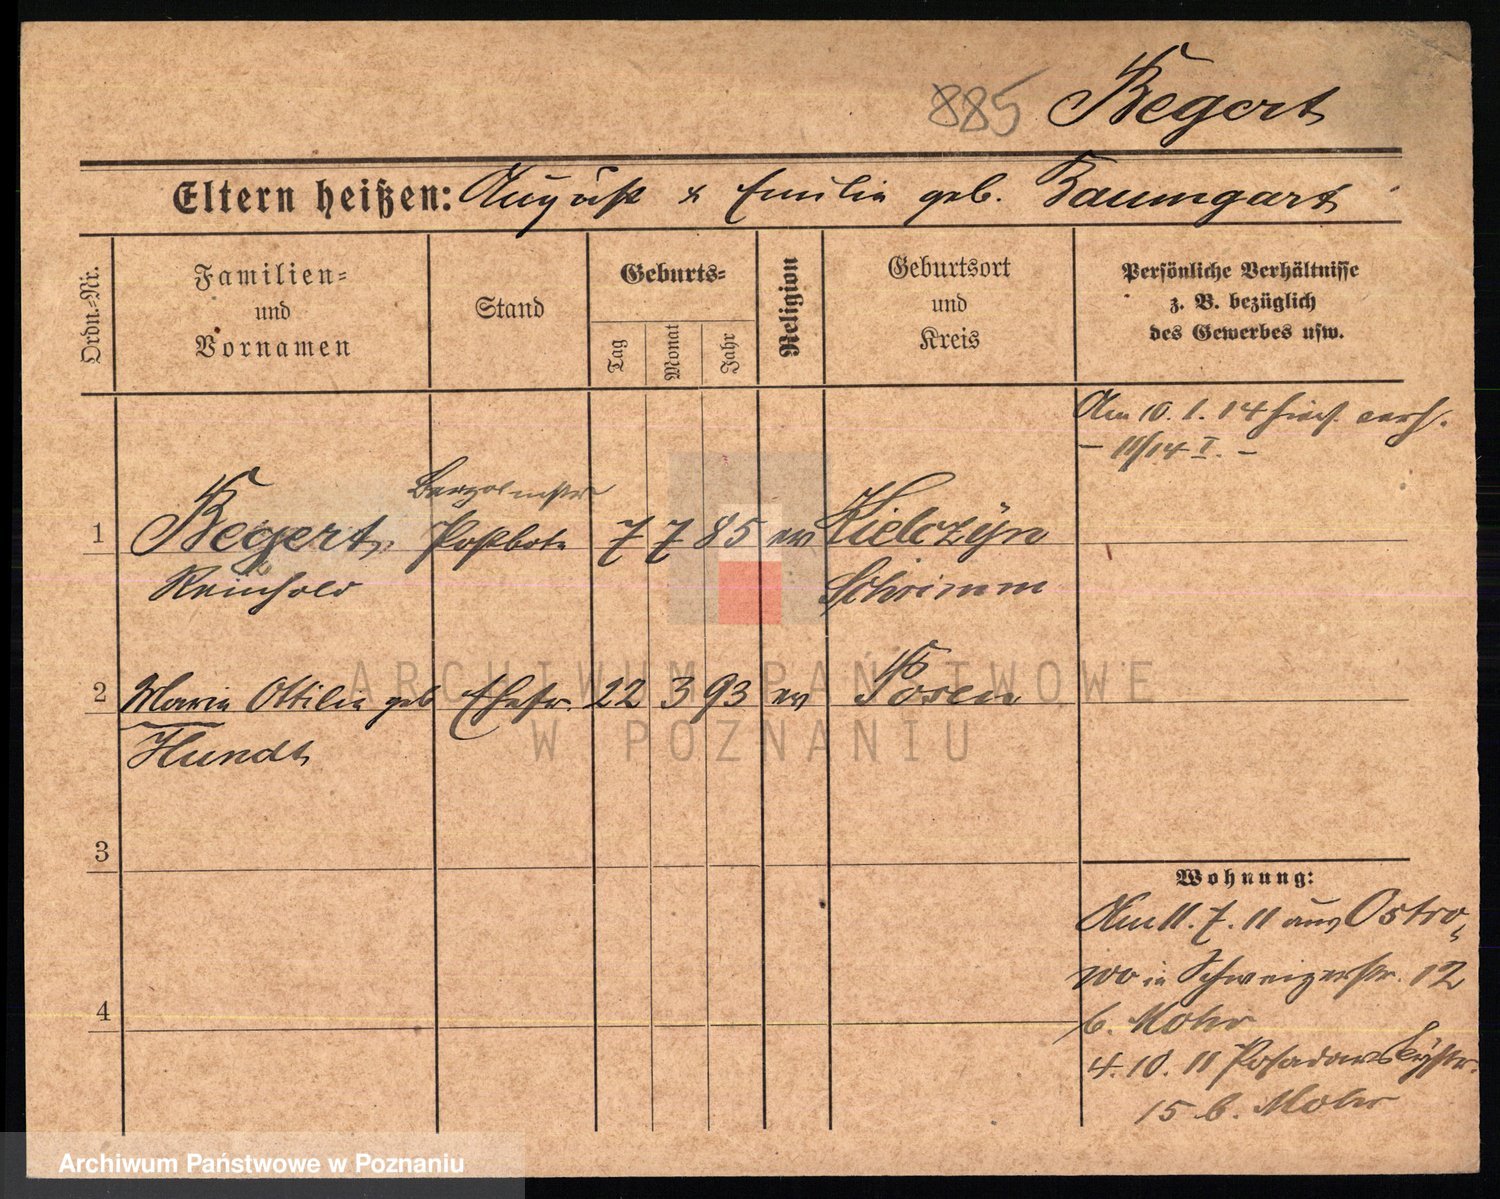 885 Begert
Eltern heißen: August & Emilie geb. Baumgart
Ordn.-Nr.
Familien-
und
Vornamen
Stand
Geburts-
Tag
Monat
Jahr
Religion
Geburtsort
und
Kreis
Persönliche Verhältnisse
z. B. bezüglich
des Gewerbes usw.
Am 10. 1. 14 hies. verh.
- 11/14 I. -
1 Begert, Postbote 7 7 85 ev Kielczyn
Reinhold Schrimm
2 Marie Ottilie geb Ehefr. 22 3 93 ev Posen
Hundt
3
4
Wohnung:
Am 11. 7. 11 aus Ostro-
wo in Schweizerstr. 12
b. Mohr
4. 10. 11 Posadowskystr.
15 b. Mohr
ARCHIWUM PAŃSTWOWE
W POZNANIU
Archiwum Państwowe w Poznaniu